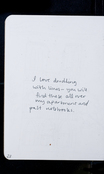 I love doodling
with lines - you will
find these all over
my sketchbooks and
past notebooks.